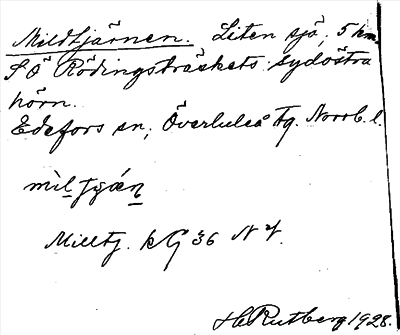 Mildtjärnen. Liten sjö, 5 km.
S Ö Rödingsträskets sydöstra
hörn.
Edefors sn, Överluleå Tg. Norrb. l.
Milltj. kG 36 N V.
H Rutberg 1928.